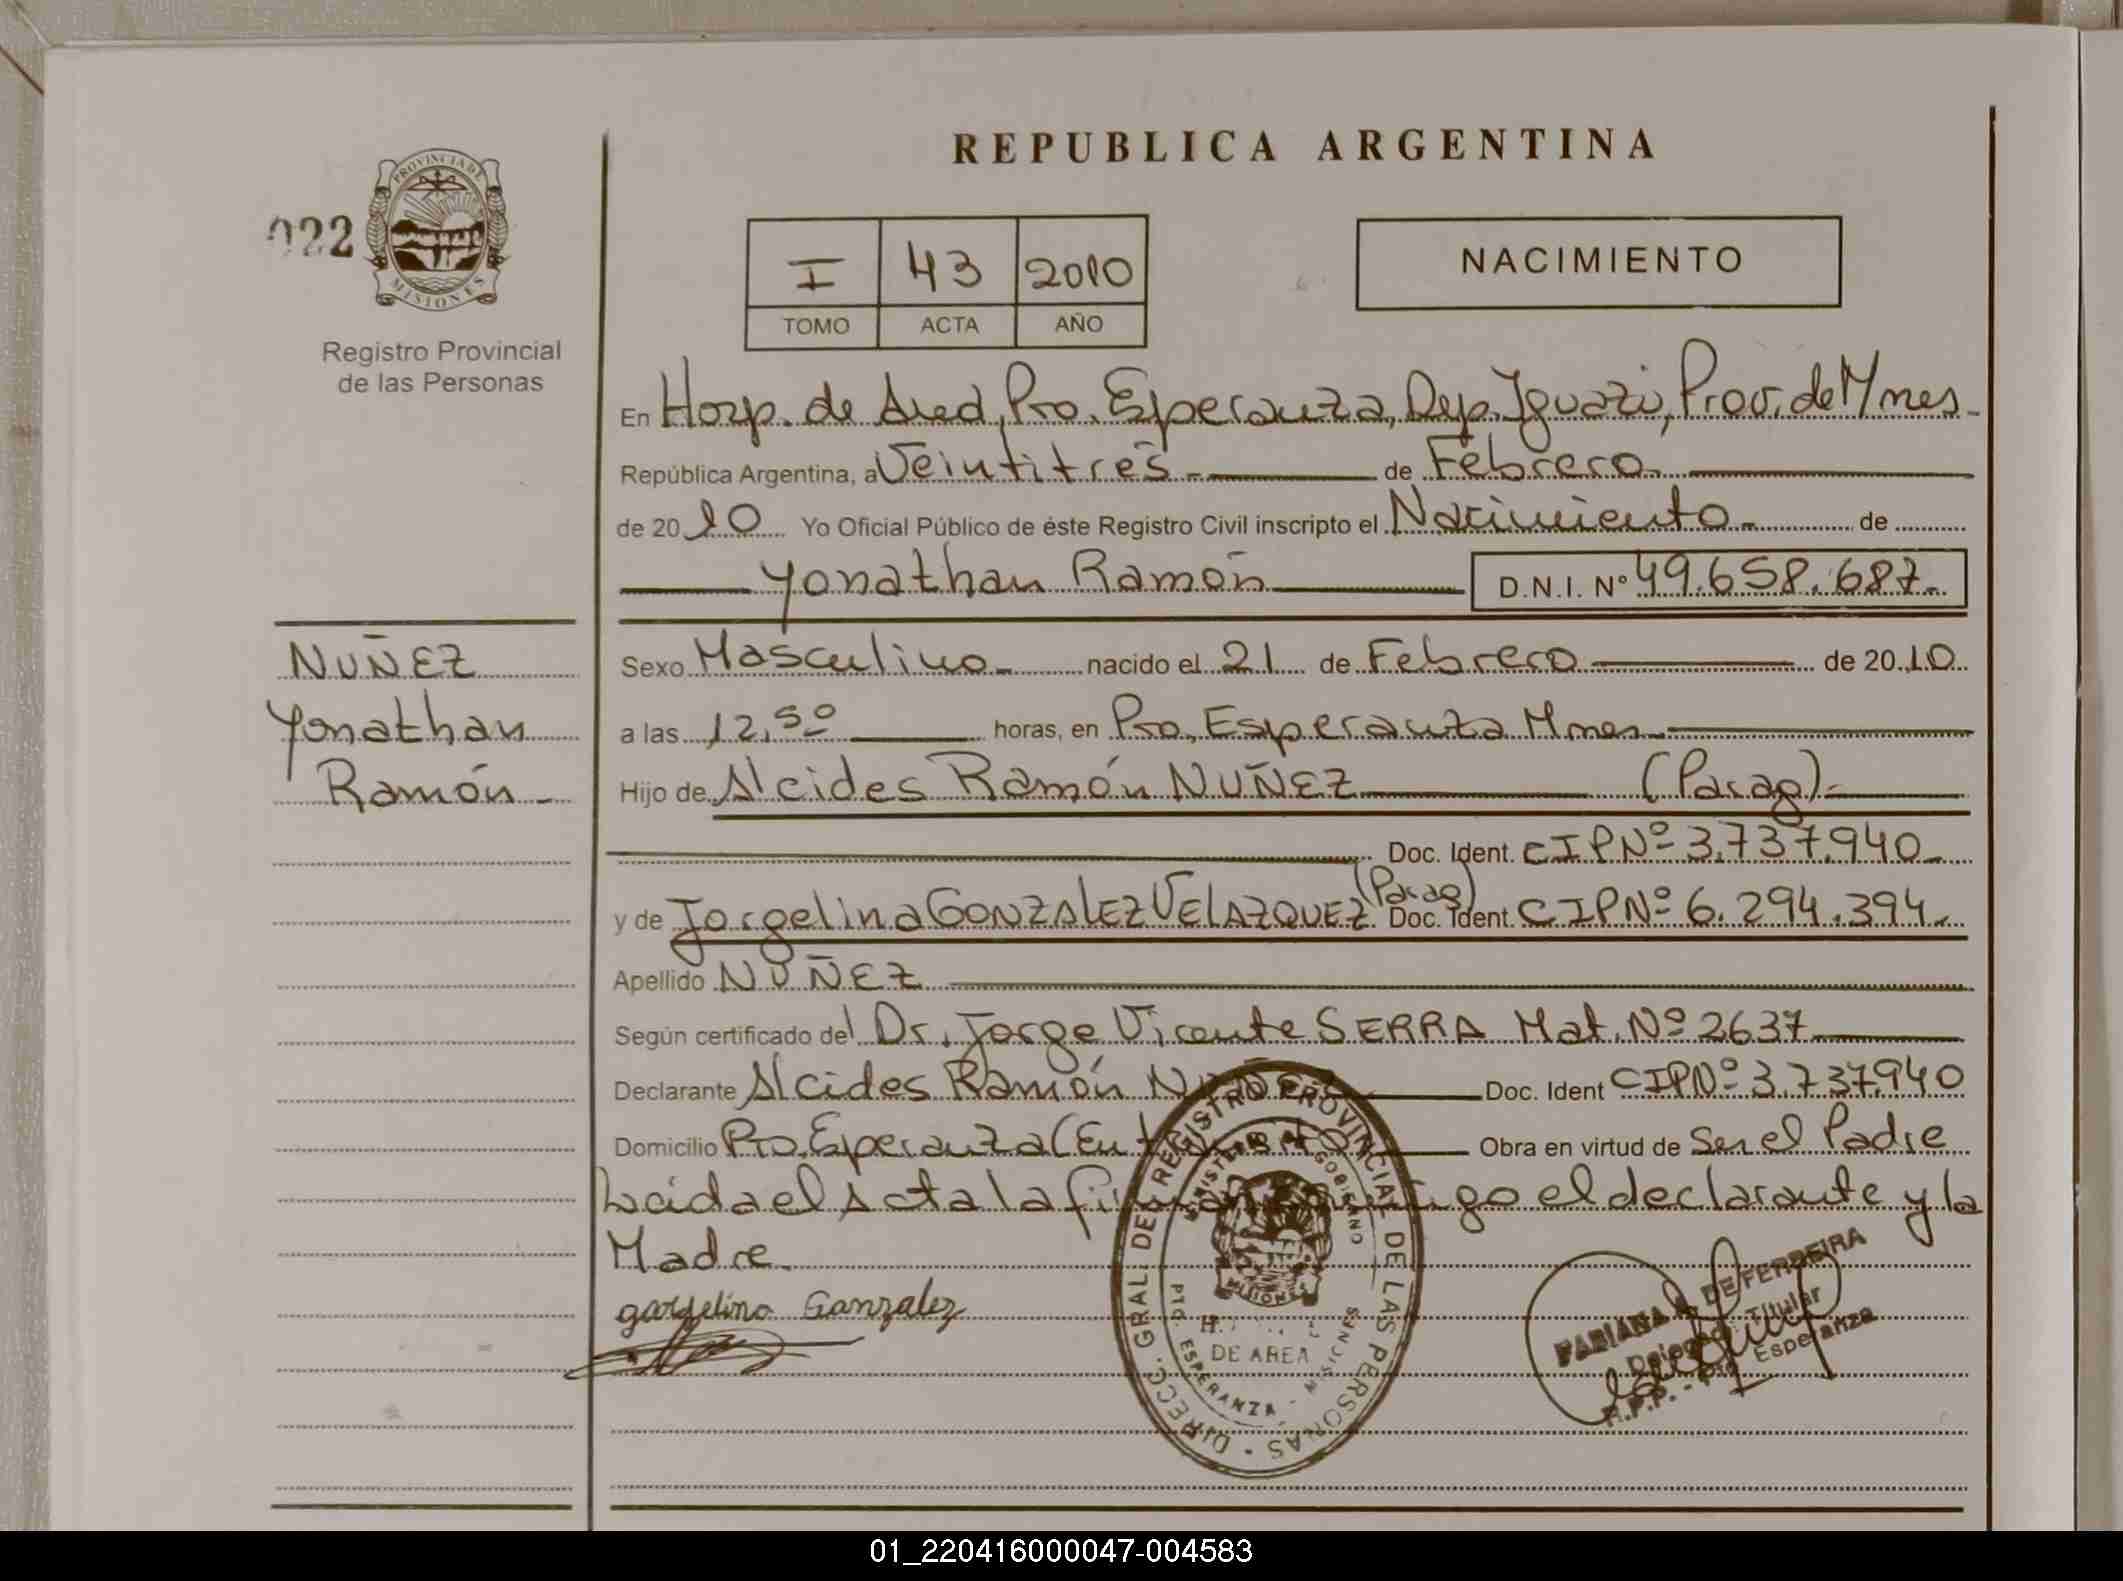 REPUBLICA ARGENTINA
022
PROVINCIA DE
MISIONES
Registro Provincial
de las Personas
I 43 2010
TOMO ACTA AÑO
NACIMIENTO
En Hosp. de Area, Pto. Esperanza, Dep. Iguazú, Prov. de Mnes
República Argentina, a Veintitres de Febrero
de 2010 Yo Oficial Público de éste Registro Civil inscripto el Nacimiento de
Yonathan Ramón D.N.I. Nº 49.658.687.
NUÑEZ
Yonathan
Ramón
Sexo Masculino nacido el 21 de Febrero de 2010
a las 12,50 horas, en Pto. Esperanza Mnes
Hijo de Alcides Ramón NUÑEZ (Parag)
Doc. Ident. CIPNº 3.737.940
y de Jorgelina GONZALEZ VELAZQUEZ (Parag) Doc. Ident. CIPNº 6.294.394
Apellido NUÑEZ
Según certificado del Dr. Jorge Vicente SERRA Mat. Nº 2637
Declarante Alcides Ramón NUÑEZ Doc. Ident CIPNº 3.737.940
Domicilio Pto. Esperanza Obra en virtud de Ser el Padre
Leida el Acta la firman conmigo el declarante y la
Madre
gorgelina Gonzalez
DIRECC. GRAL. DEL REGISTRO PROVINCIAL DE LAS PERSONAS
MINISTERIO DE GOBIERNO
MISIONES
DE AREA
PTO. ESPERANZA - MISIONES
FABIANA DE FERREIRA
Delegada Titular
R.P.P. - Pto Esperanza
01_220416000047-004583